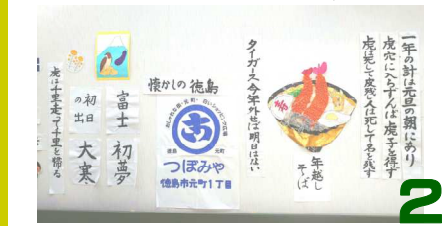 一年の計は元旦の朝にあり
虎穴に入らずんば虎子を得ず
虎は死して皮残人は死して名を残す
寿
年越し
そば
タイガース今年外せば明日はない
懐かしの徳島
徳島 元町
つぼみや
徳島市元町1丁目
富士 初夢
初日
の出
大寒
虎は千里走って千里を帰る
2